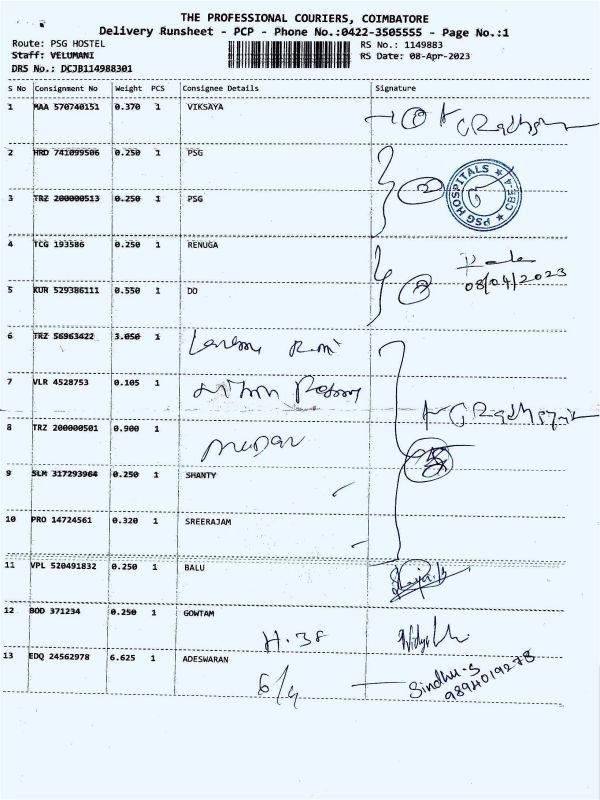 THE PROFESSIONAL COURIERS, COIMBATORE
Delivery Runsheet - PCP - Phone No.:0422-3505555 - Page No.:1
Route: PSG HOSTEL RS No.: 1149883
Staff: VELUMANI RS Date: 08-Apr-2023
DRS No.: DCJB114988301
S No Consignment No Weight PCS Consignee Details Signature
1 MAA 570740151 0.370 1 VIKSAYA
2 HRD 741099506 0.250 1 PSG
PSG HOSPITALS CBE-4
3 TRZ 200000513 0.250 1 PSG
4 TCG 193586 0.250 1 RENUGA
08/04/2023
5 KUR 529386111 0.550 1 DO
6 TRZ 56963422 3.050 1
7 VLR 4528753 0.105 1
8 TRZ 200000501 0.900 1
9 SLM 317293964 0.250 1 SHANTY
10 PRO 14724561 0.320 1 SREERAJAM
11 VPL 520491832 0.250 1 BALU
12 BOD 371234 0.250 1 GOWTAM
H.38
13 EDQ 24562978 6.625 1 ADESWARAN
6/4 Sindhu.S
9894019278